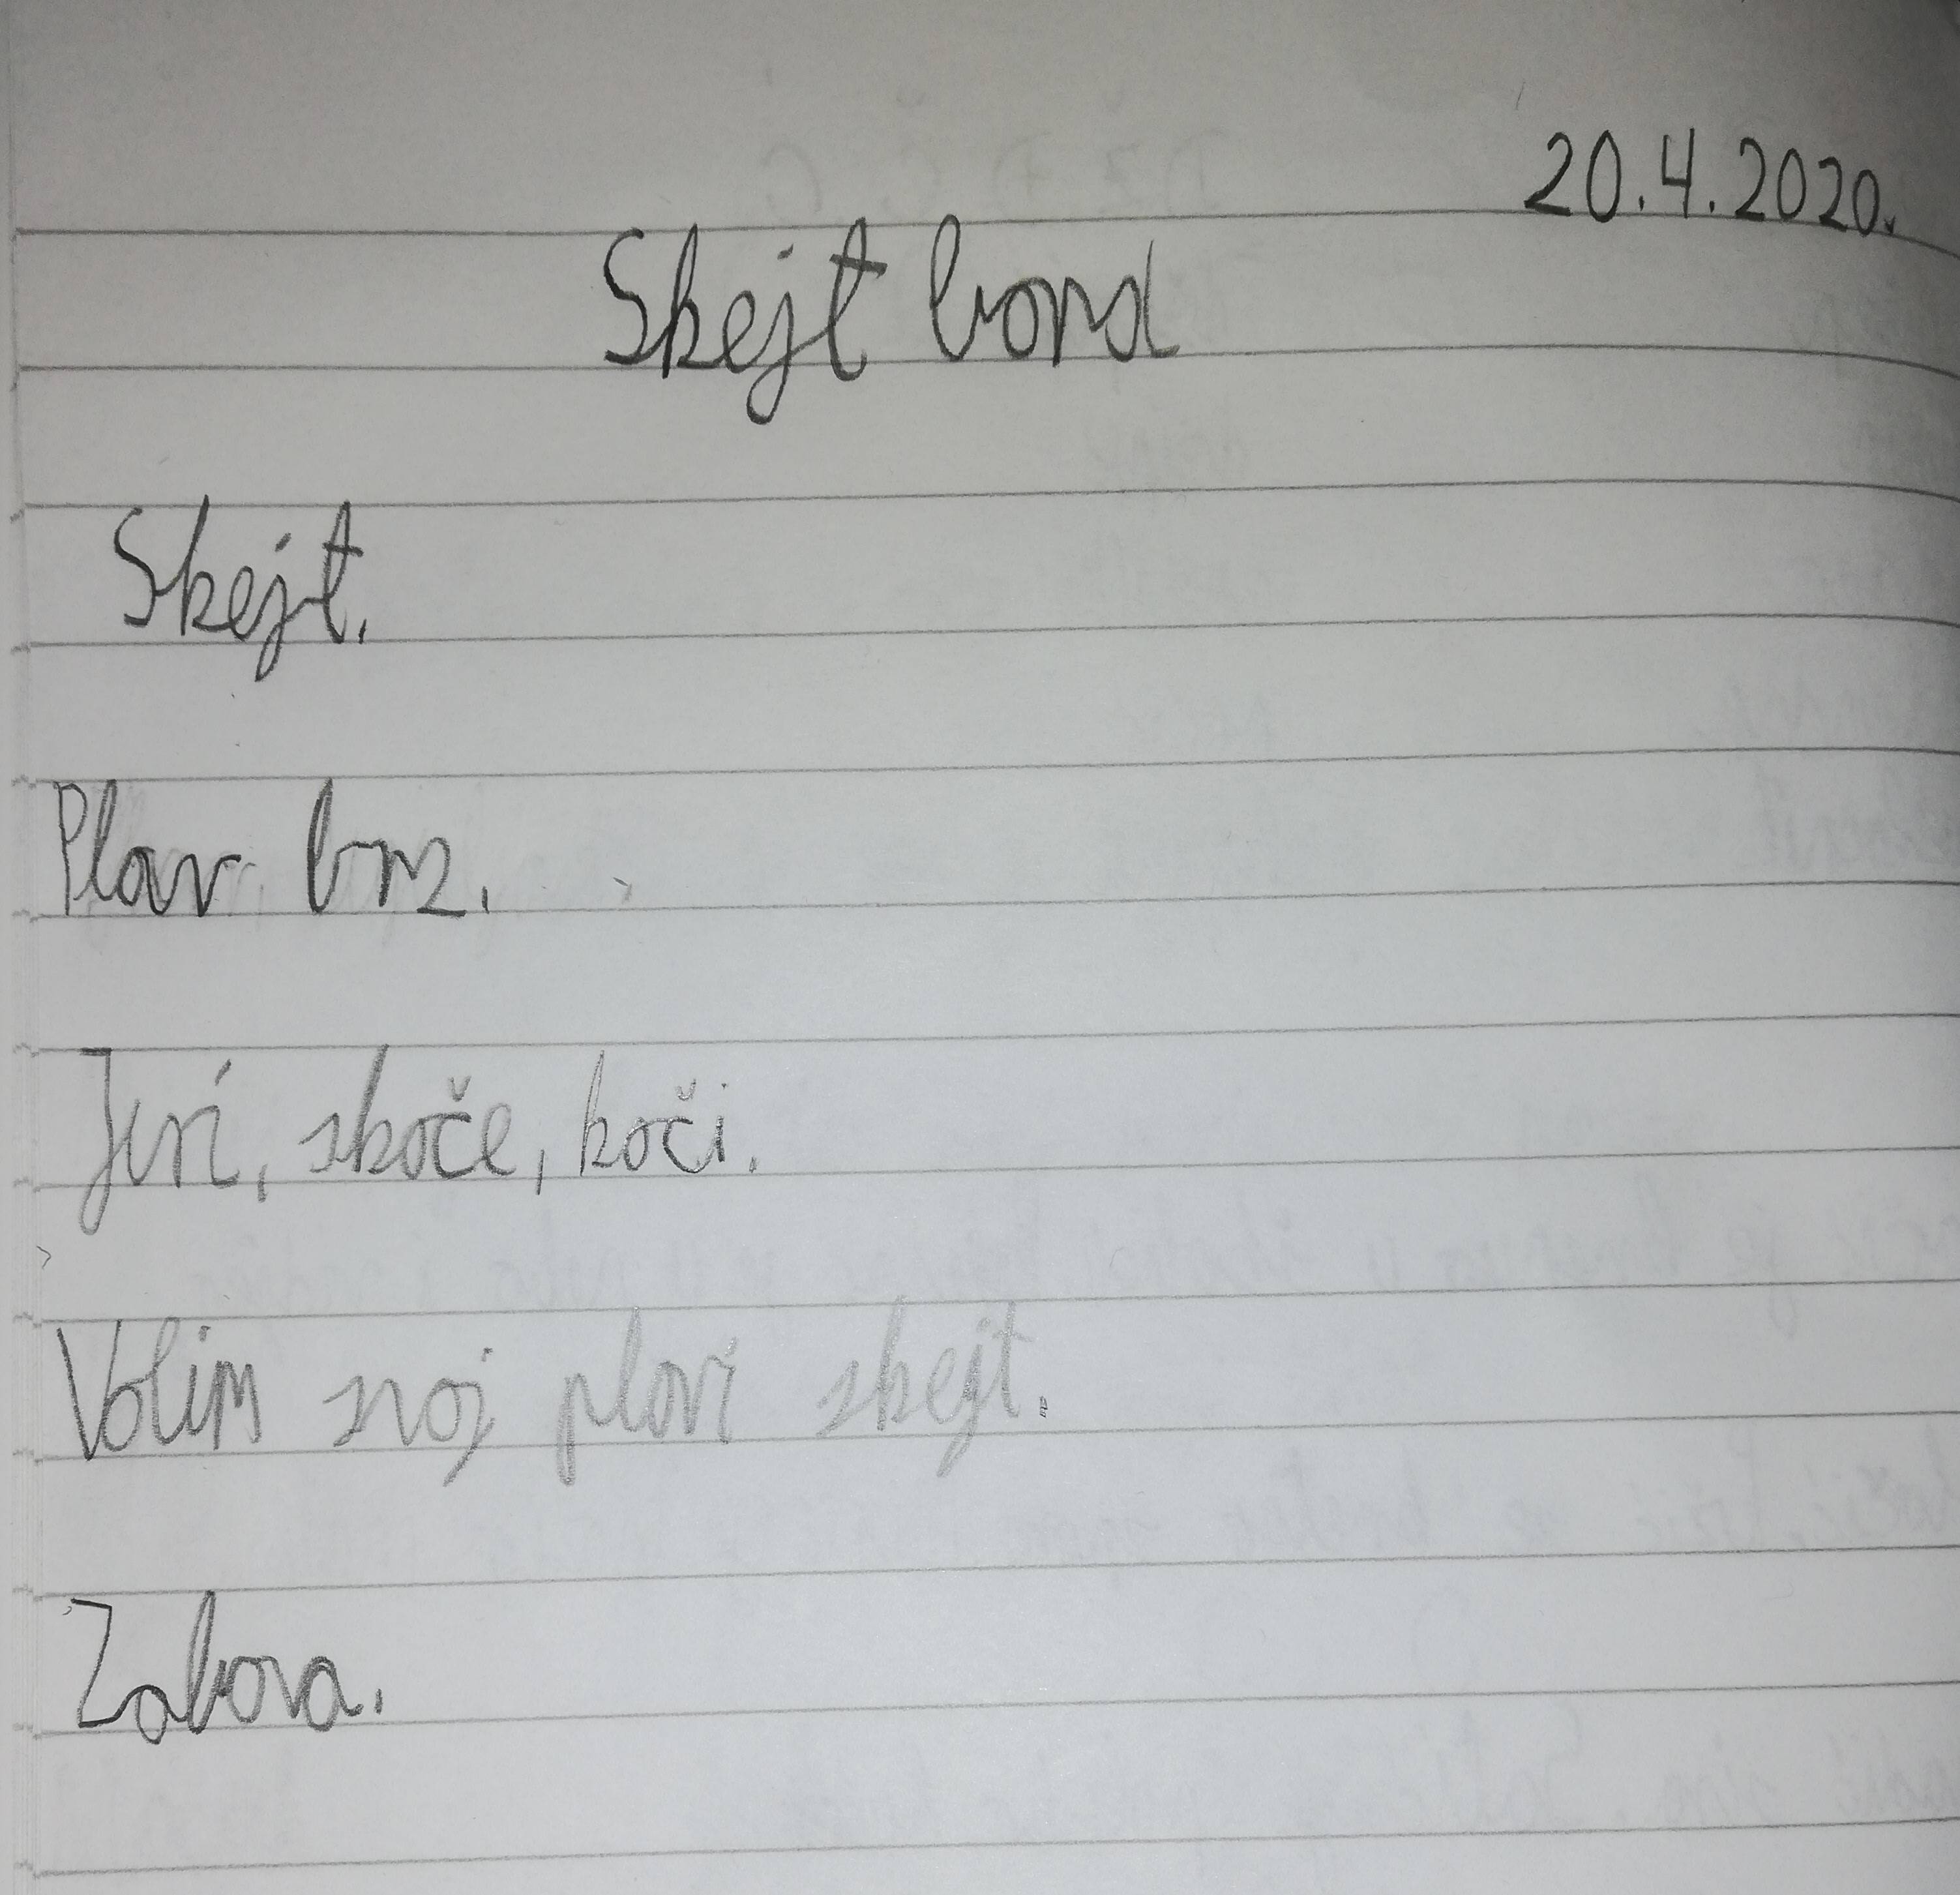 20.4.2020.
Skejt bord
Skejt.
Plav brz.
Juri, skoče, koči.
Volim svoj plavi skejt.
Zabava.